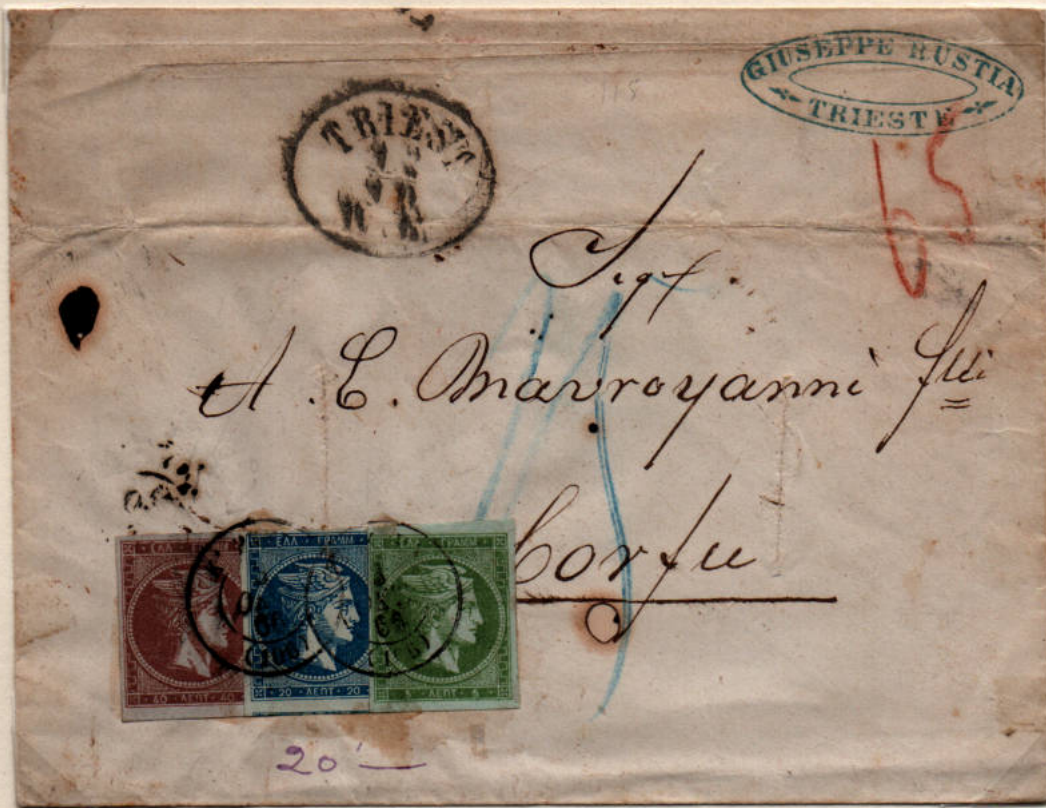 GIUSEPPE RUSTIA
TRIESTE
TRIEST
65
Sigr
A. E. Mavroyanni flli
Corfu
ΕΛΛ · ΓΡΑΜΜ
40 · ΛΕΠΤ · 40
ΕΛΛ · ΓΡΑΜΜ
20 · ΛΕΠΤ · 20
ΕΛΛ · ΓΡΑΜΜ
5 · ΛΕΠΤ · 5
(106)
20 —